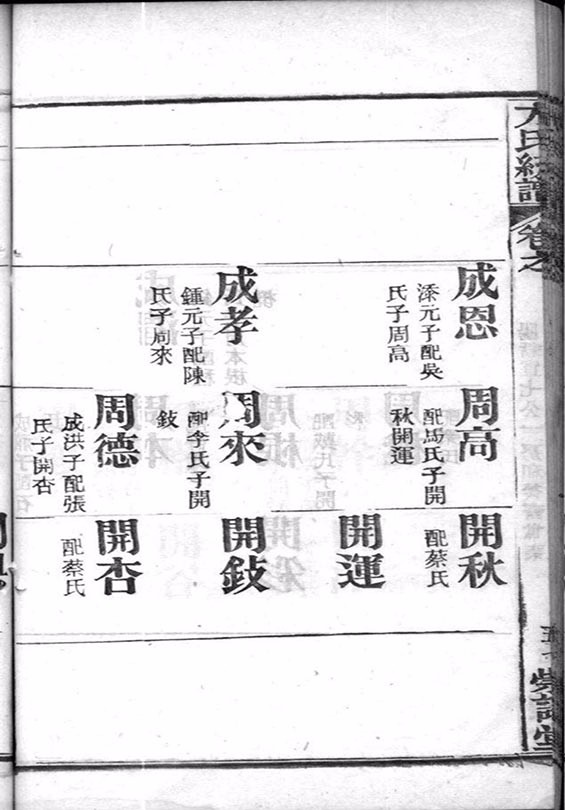 氏統譜
卷之
成恩
添元子配吳
氏子周高
周高
配馬氏子開
秋開運
開秋
配蔡氏
開運
成孝
鍾元子配陳
氏子周來
周來
配李氏子開
鈘
開鈘
周德
成洪子配張
氏子開杏
開杏
配蔡氏